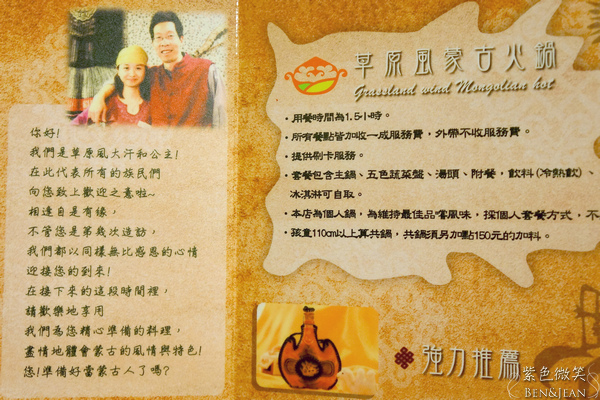 你好!
我們是草原風大汗和公主!
在此代表所有的族民們
向您致上歡迎之意啦~
相逢自是有緣，
不管您是第幾次造訪，
我們都以同樣無比感恩的心情
迎接您的到來!
在接下來的這段時間裡，
請歡樂地享用
我們為您精心準備的料理，
盡情地體會蒙古的風情與特色!
您!準備好當蒙古人了嗎?
草原風蒙古火鍋
Grassland wind Mongolian hot
·用餐時間為1.5小時。
·所有餐點皆加收一成服務費，外帶不收服務費。
·提供刷卡服務。
·套餐包含主鍋、五色蔬菜盤、湯頭、附餐，飲料(冷熱飲)、
冰淇淋可自取。
·本店為個人鍋，為維持最佳品嚐風味，採個人套餐方式，不
·孩童110cm以上算共鍋，共鍋須另加點150元的加料。
強力推薦
紫色微笑
BEN&JEAN